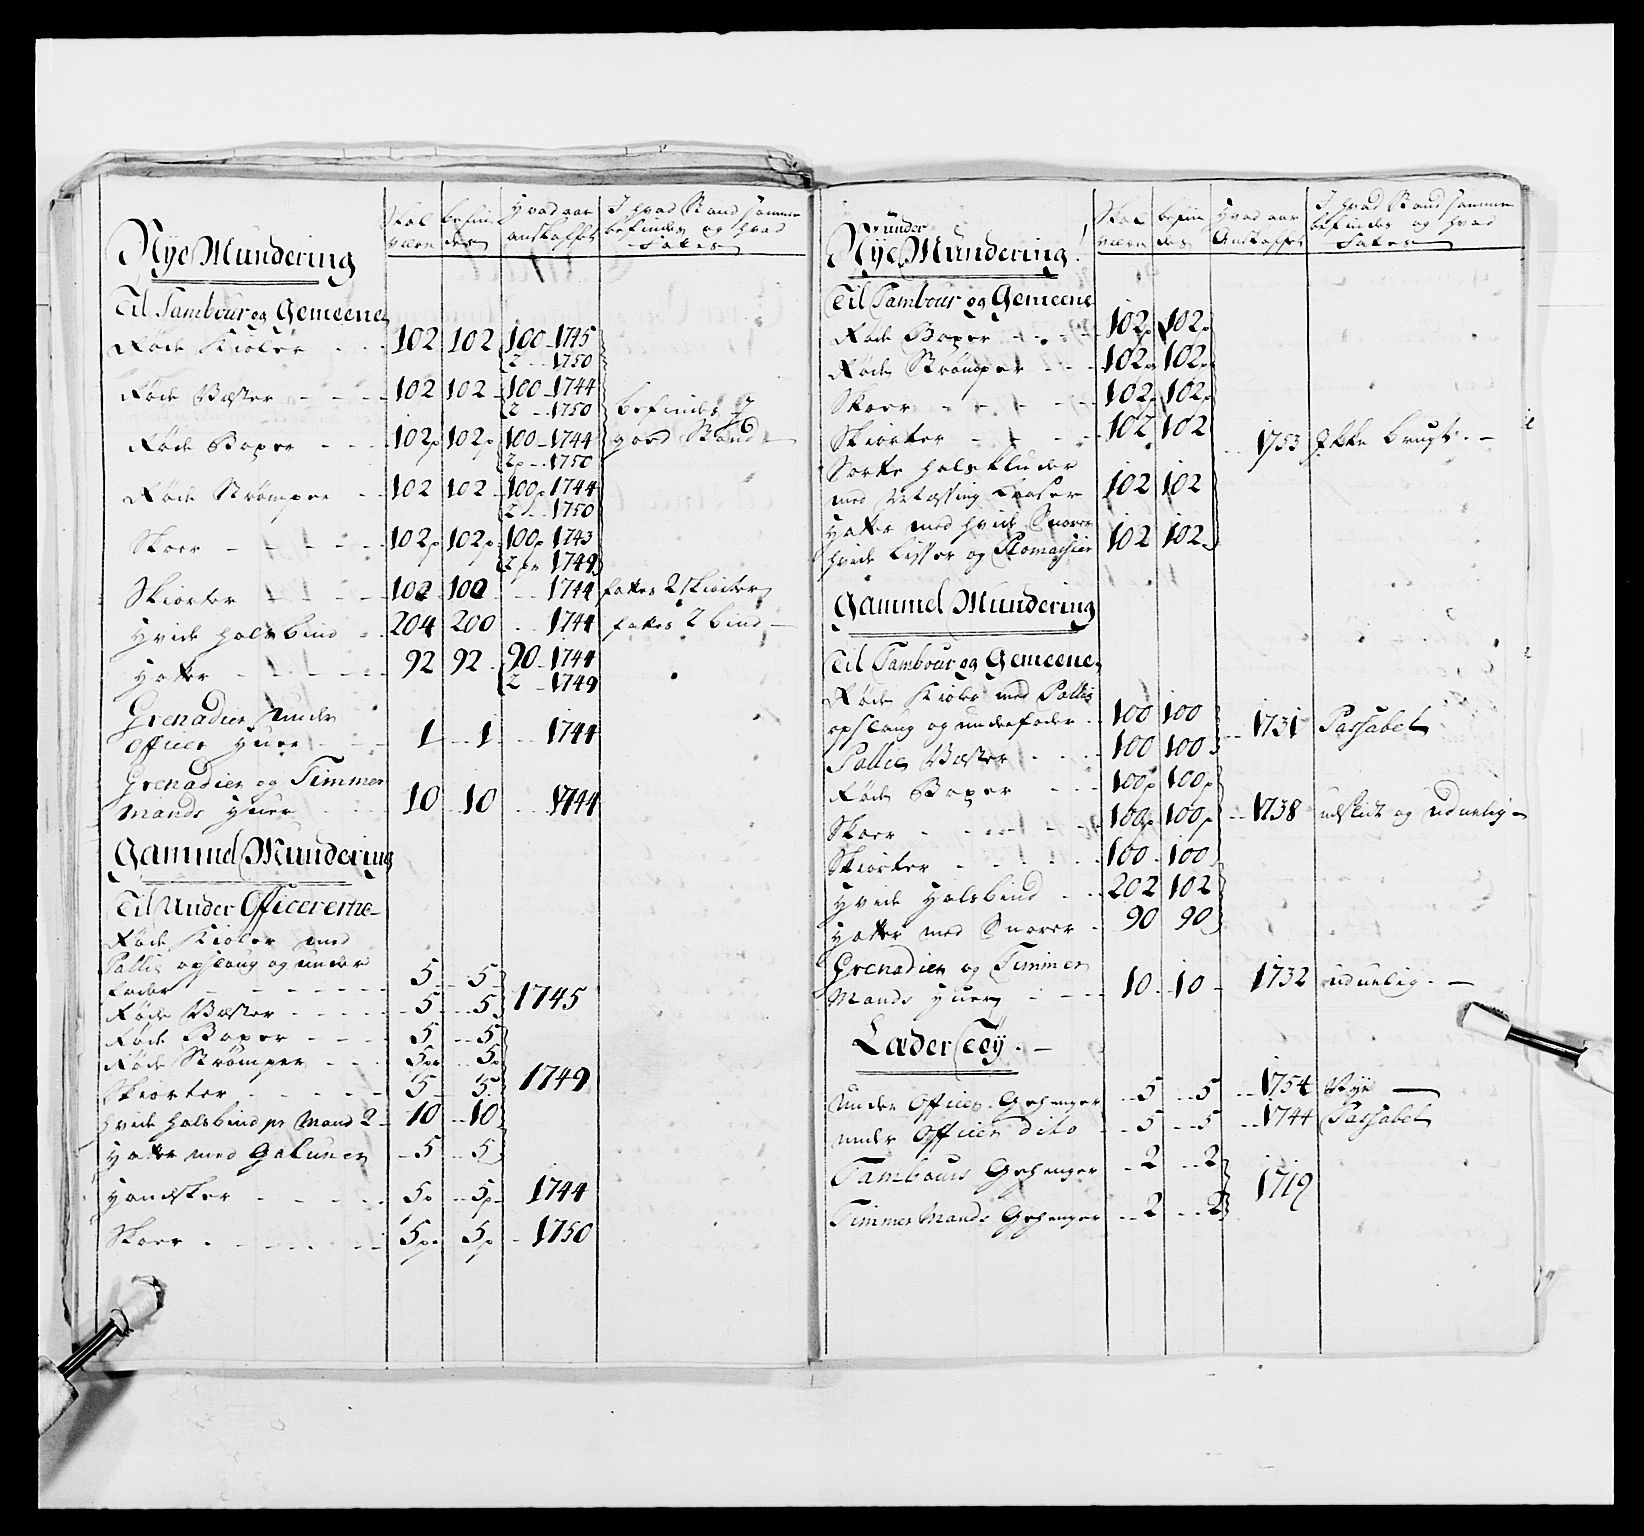 Skal være
befindes
Hvad aar anskaffet
I hvad Stand samme befindes og hvad fates
Nye Mundering
Til Tambour og Gemeene
Røde Kioler - - - 102 102 100 - 1745
2 - - 1750
Røde Væster - - - 102 102 - 100 - 1744
2 - 1750
befindes I
Røde Boxer - - - 102p 102p 100 - 1744 goed Stand -
2p - - 1750
Røde Strømper - - 102 102 - 100p 1744
2 - - 1750
Skoer - - - - - 102p 102p 100p 1743
2 pr 1749
Skiorter - - - - 102 100 - - 1744 fattes 2 skiorter
Hvide halsbind - 204 200 - - 1744 fattes 2 bind -
Hatter - - - - - 92 92 - 90 - 1744
2 - 1749
Grenadier under
Officer Huer - - - 1 - - 1 - - - 1744
Grenadier og Timmer
Mands Huer - - - 10 - - 10 - - - 1744
Gammel Mundering
Til Under Officererne -
Røde Kioler med
Pallie opslaug og under
foder - - - - - - - 5 - - 5
Røde Væster - - - - - 5 - - 5 1745
Røde Boxer - - - - 5 - - 5
Røde Strømper - - - 5pr - - 5p
Skiorter - - - - - 5 - 5 1749
hvide halsbind pr Mand 2 - 10 - - 10
Hatter med Galuner - 5 - - 5
Handsker - - - - 5p - - 5p - 1744
Skoer - - - - - - 5pr 5p - 1750
Skal være
befindes
Hvad aar Anskaffet
I hvad Stand samme befindes og hvad fates
under
Nye Mundering
Til Tambour og Gemeene
Røde Boxer - - - - 102p 102p
Røde Strømper - - - 102pr 102p
Skoer - - - - - 102p 102p
Skiorter - - - - 102 102
- - 1753 Ikke brugt. -
Sorte halskluder
med Messing Laaser 102 102
Hatter med hvide Snorer
hvide Lisser og Plomachier 102 102
Gammel Mundering
Til Tambour og Gemeene
Røde Kioler med Pallie
opslaug og underfoder - 100 100 - - 1731 Passabel
Pallie Væster - - - - 100 100
Røde Boxer - - - 100p 100p
Skoer - - - - - - 100p 100p - - 1738 udslidt og uduelig -
Skiorter - - - - - 100 - 100
Hvide Halsbind - - - 202 102
Hatter med Snorer - 90 90
Grenadier og Timmer
Mands Huer - - - - 10 - 10 - 1732 uduelig. -
Læder Töÿ. -
Under Officer Gehenger - - 5 - - 5 - - 1754 Nye -
under Officer dito - - 5 - - 5 - - 1744 Passabel
Tambours Gehenger - 2 - - 2
1719
Timmer Mands Gehenger - - 2 - - 2